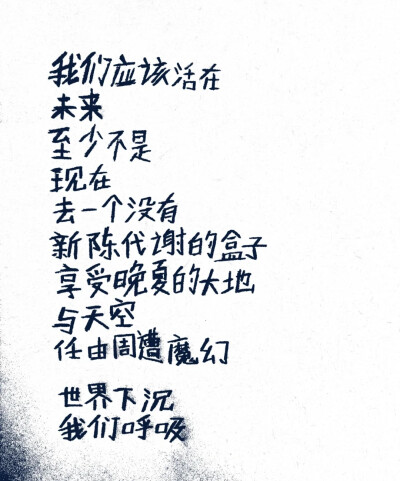 我们应该活在
未来
至少不是
现在
去一个没有
新陈代谢的盒子
享受晚夏的大地
与天空
任由周遭魔幻
世界下沉
我们呼吸